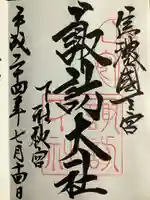 信濃國一之宮
諏訪大社
下社秋宮
平成二十四年七月十四日